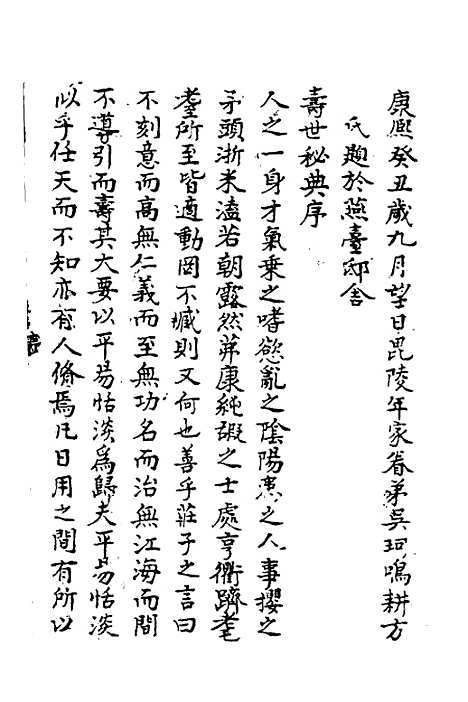 康熙癸丑歲九月望日毘陵年家眷弟吳珂鳴耕方
氏題於燕臺邸舍
壽世秘典序
人之一身才氣乗之嗜慾亂之陰陽寇之人事攖之
矛頭淅米溘若朝露然茀康純嘏之士處亨衢躋耄
耋所至皆適動罔不臧則又何也善乎莊子之言曰
不刻意而高無仁義而至無功名而治無江海而間
不導引而壽其大要以平易恬淡為歸夫平易恬淡
似乎任天而不知亦有人脩焉凡日用之間有所以